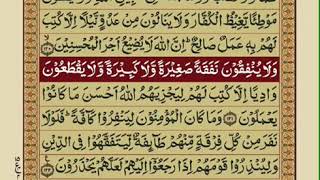 مَوْطِئًا يَّغِيْظُ الْكُفَّارَ وَلَا يَنَالُوْنَ مِنْ عَدُوٍّ نَّيْلًا اِلَّا كُتِبَ
لَهُمْ بِهٖ عَمَلٌ صَالِحٌ ؕ اِنَّ اللّٰهَ لَا يُضِيْعُ اَجْرَ الْمُحْسِنِيْنَ ﴿۱۲۰﴾
وَلَا يُنْفِقُوْنَ نَفَقَةً صَغِيْرَةً وَّلَا كَبِيْرَةً وَّلَا يَقْطَعُوْنَ
وَادِيًا اِلَّا كُتِبَ لَهُمْ لِيَجْزِيَهُمُ اللّٰهُ اَحْسَنَ مَا كَانُوْا
يَعْمَلُوْنَ ﴿۱۲۱﴾ وَمَا كَانَ الْمُؤْمِنُوْنَ لِيَنْفِرُوْا كَآفَّةً ؕ فَلَوْلَا
نَفَرَ مِنْ كُلِّ فِرْقَةٍ مِّنْهُمْ طَآئِفَةٌ لِّيَتَفَقَّهُوْا فِى الدِّيْنِ
وَلِيُنْذِرُوْا قَوْمَهُمْ اِذَا رَجَعُوْۤا اِلَيْهِمْ لَعَلَّهُمْ يَحْذَرُوْنَ ﴿۱۲۲﴾